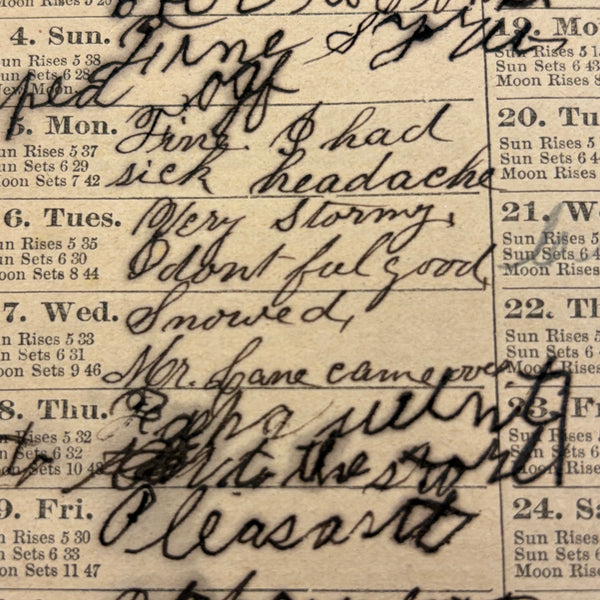 Moon Rises 5 20
4. Sun. Fine
Sun Rises 5 38
Sun Sets 6 28
New Moon.
ped off
5. Mon. Fine. I had
Sun Rises 5 37
Sun Sets 6 29 sick headache
Moon Sets 7 42
6. Tues. Very Stormy.
Sun Rises 5 35
Sun Sets 6 30 I dont feel good
Moon Sets 8 44
7. Wed. Snowed,
Sun Rises 5 33
Sun Sets 6 31
Moon Sets 9 46 Mr. Lane came over
8. Thu.
Sun Rises 5 32
Sun Sets 6 32 to the store
Moon Sets 10 48
9. Fri. Pleasant
Sun Rises 5 30
Sun Sets 6 33
Moon Sets 11 47
19. Mo
Sun Rises 5 15
Sun Sets 6 43
Moon Rises 8
20. Tu
Sun Rises 5
Sun Sets 6 4
Moon Rises
21. We
Sun Rises 5
Sun Sets 6 4
Moon Rises
22. Th
Sun Rises 5
Sun Sets 6
Moon Rises
23. Fr
Sun Rises
Sun Sets 6
Moon Rises
24. Sa
Sun Rises
Sun Sets 6
Moon Rises